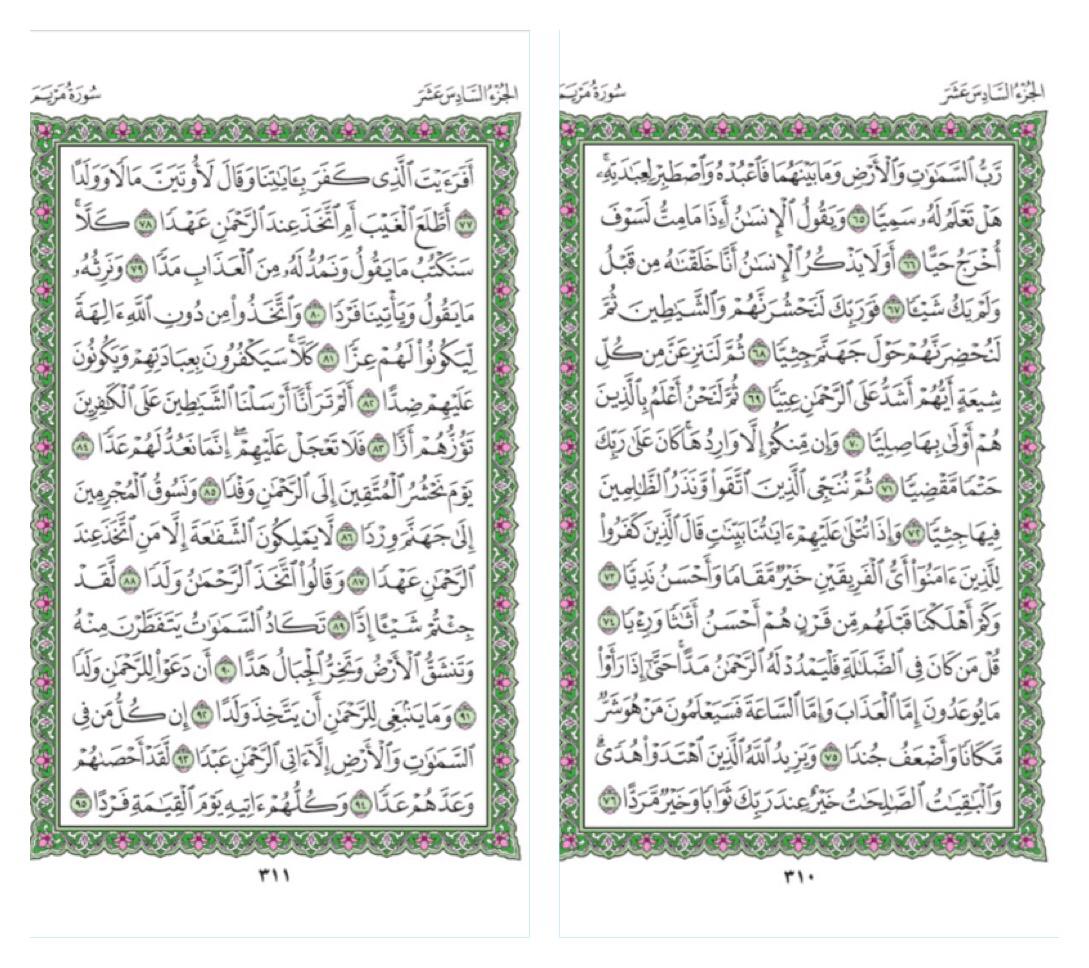 الجزء السادس عشر
سورة مريم
رَّبُّ ٱلسَّمَٰوَٰتِ وَٱلْأَرْضِ وَمَا بَيْنَهُمَا فَٱعْبُدْهُ وَٱصْطَبِرْ لِعِبَٰدَتِهِۦۚ
هَلْ تَعْلَمُ لَهُۥ سَمِيًّا ٦٥ وَيَقُولُ ٱلْإِنسَٰنُ أَءِذَا مَا مِتُّ لَسَوْفَ
أُخْرَجُ حَيًّا ٦٦ أَوَلَا يَذْكُرُ ٱلْإِنسَٰنُ أَنَّا خَلَقْنَٰهُ مِن قَبْلُ
وَلَمْ يَكُ شَيْـًٔا ٦٧ فَوَرَبِّكَ لَنَحْشُرَنَّهُمْ وَٱلشَّيَٰطِينَ ثُمَّ
لَنُحْضِرَنَّهُمْ حَوْلَ جَهَنَّمَ جِثِيًّا ٦٨ ثُمَّ لَنَنزِعَنَّ مِن كُلِّ
شِيعَةٍ أَيُّهُمْ أَشَدُّ عَلَى ٱلرَّحْمَٰنِ عِتِيًّا ٦٩ ثُمَّ لَنَحْنُ أَعْلَمُ بِٱلَّذِينَ
هُمْ أَوْلَىٰ بِهَا صِلِيًّا ٧٠ وَإِن مِّنكُمْ إِلَّا وَارِدُهَاۚ كَانَ عَلَىٰ رَبِّكَ
حَتْمًا مَّقْضِيًّا ٧١ ثُمَّ نُنَجِّى ٱلَّذِينَ ٱتَّقَوا۟ وَّنَذَرُ ٱلظَّٰلِمِينَ
فِيهَا جِثِيًّا ٧٢ وَإِذَا تُتْلَىٰ عَلَيْهِمْ ءَايَٰتُنَا بَيِّنَٰتٍ قَالَ ٱلَّذِينَ كَفَرُوا۟
لِلَّذِينَ ءَامَنُوٓا۟ أَىُّ ٱلْفَرِيقَيْنِ خَيْرٌ مَّقَامًا وَأَحْسَنُ نَدِيًّا ٧٣
وَكَمْ أَهْلَكْنَا قَبْلَهُم مِّن قَرْنٍ هُمْ أَحْسَنُ أَثَٰثًا وَرِءْيًا ٧٤
قُلْ مَن كَانَ فِى ٱلضَّلَٰلَةِ فَلْيَمْدُدْ لَهُ ٱلرَّحْمَٰنُ مَدًّاۚ حَتَّىٰٓ إِذَا رَأَوْا۟
مَا يُوعَدُونَ إِمَّا ٱلْعَذَابَ وَإِمَّا ٱلسَّاعَةَ فَسَيَعْلَمُونَ مَنْ هُوَ شَرٌّ
مَّكَانًا وَأَضْعَفُ جُندًا ٧٥ وَيَزِيدُ ٱللَّهُ ٱلَّذِينَ ٱهْتَدَوْا۟ هُدًىۗ
وَٱلْبَٰقِيَٰتُ ٱلصَّٰلِحَٰتُ خَيْرٌ عِندَ رَبِّكَ ثَوَابًا وَخَيْرٌ مَّرَدًّا ٧٦
٣١٠
الجزء السادس عشر
سورة مريم
أَفَرَءَيْتَ ٱلَّذِى كَفَرَ بِـَٔايَٰتِنَا وَقَالَ لَأُوتَيَنَّ مَالًا وَوَلَدًا
٧٧ أَطَّلَعَ ٱلْغَيْبَ أَمِ ٱتَّخَذَ عِندَ ٱلرَّحْمَٰنِ عَهْدًا ٧٨ كَلَّاۚ
سَنَكْتُبُ مَا يَقُولُ وَنَمُدُّ لَهُۥ مِنَ ٱلْعَذَابِ مَدًّا ٧٩ وَنَرِثُهُۥ
مَا يَقُولُ وَيَأْتِينَا فَرْدًا ٨٠ وَٱتَّخَذُوا۟ مِن دُونِ ٱللَّهِ ءَالِهَةً
لِّيَكُونُوا۟ لَهُمْ عِزًّا ٨١ كَلَّاۚ سَيَكْفُرُونَ بِعِبَادَتِهِمْ وَيَكُونُونَ
عَلَيْهِمْ ضِدًّا ٨٢ أَلَمْ تَرَ أَنَّآ أَرْسَلْنَا ٱلشَّيَٰطِينَ عَلَى ٱلْكَٰفِرِينَ
تَؤُزُّهُمْ أَزًّا ٨٣ فَلَا تَعْجَلْ عَلَيْهِمْۖ إِنَّمَا نَعُدُّ لَهُمْ عَدًّا ٨٤
يَوْمَ نَحْشُرُ ٱلْمُتَّقِينَ إِلَى ٱلرَّحْمَٰنِ وَفْدًا ٨٥ وَنَسُوقُ ٱلْمُجْرِمِينَ
إِلَىٰ جَهَنَّمَ وِرْدًا ٨٦ لَّا يَمْلِكُونَ ٱلشَّفَٰعَةَ إِلَّا مَنِ ٱتَّخَذَ عِندَ
ٱلرَّحْمَٰنِ عَهْدًا ٨٧ وَقَالُوا۟ ٱتَّخَذَ ٱلرَّحْمَٰنُ وَلَدًا ٨٨ لَّقَدْ
جِئْتُمْ شَيْـًٔا إِدًّا ٨٩ تَكَادُ ٱلسَّمَٰوَٰتُ يَتَفَطَّرْنَ مِنْهُ
وَتَنشَقُّ ٱلْأَرْضُ وَتَخِرُّ ٱلْجِبَالُ هَدًّا ٩٠ أَن دَعَوْا۟ لِلرَّحْمَٰنِ وَلَدًا
٩١ وَمَا يَنۢبَغِى لِلرَّحْمَٰنِ أَن يَتَّخِذَ وَلَدًا ٩٢ إِن كُلُّ مَن فِى
ٱلسَّمَٰوَٰتِ وَٱلْأَرْضِ إِلَّآ ءَاتِى ٱلرَّحْمَٰنِ عَبْدًا ٩٣ لَّقَدْ أَحْصَىٰهُمْ
وَعَدَّهُمْ عَدًّا ٩٤ وَكُلُّهُمْ ءَاتِيهِ يَوْمَ ٱلْقِيَٰمَةِ فَرْدًا ٩٥
٣١١